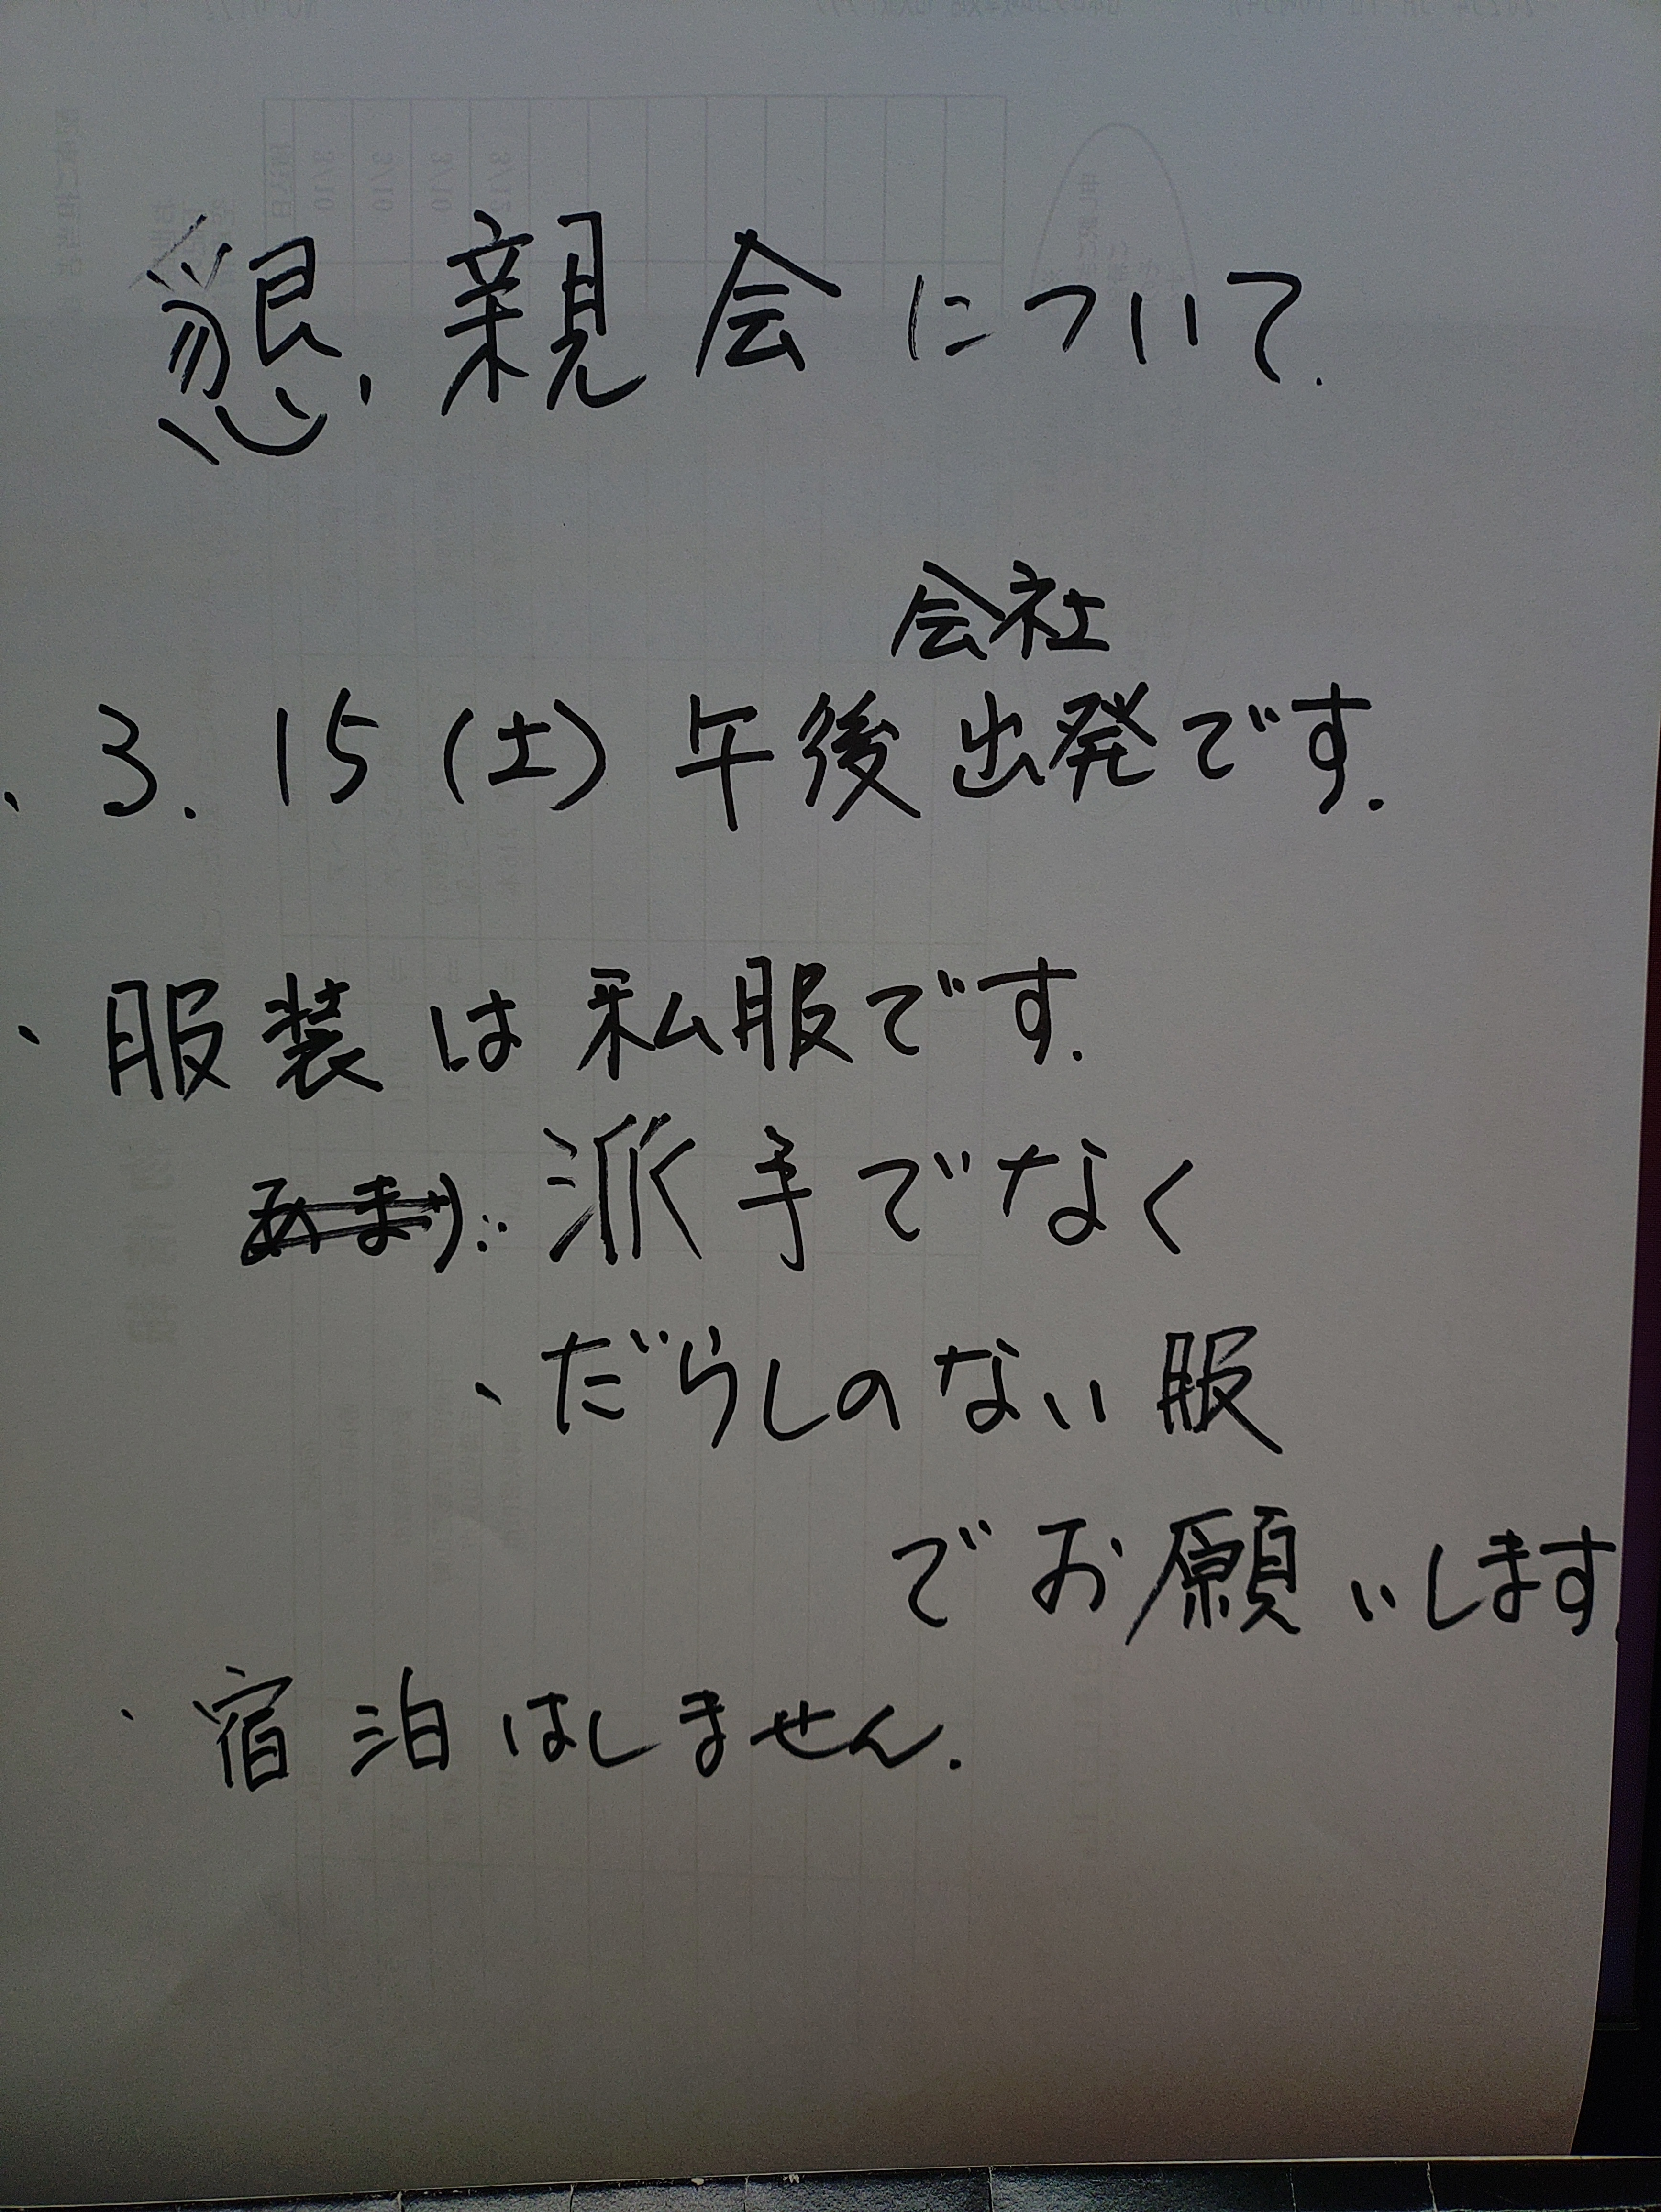 懇親会について.
会社
、3.15(土)午後出発です.
、服装は私服です.
あまり:派手でなく
、だらしのない服
でお願いします.
、宿泊はしません.